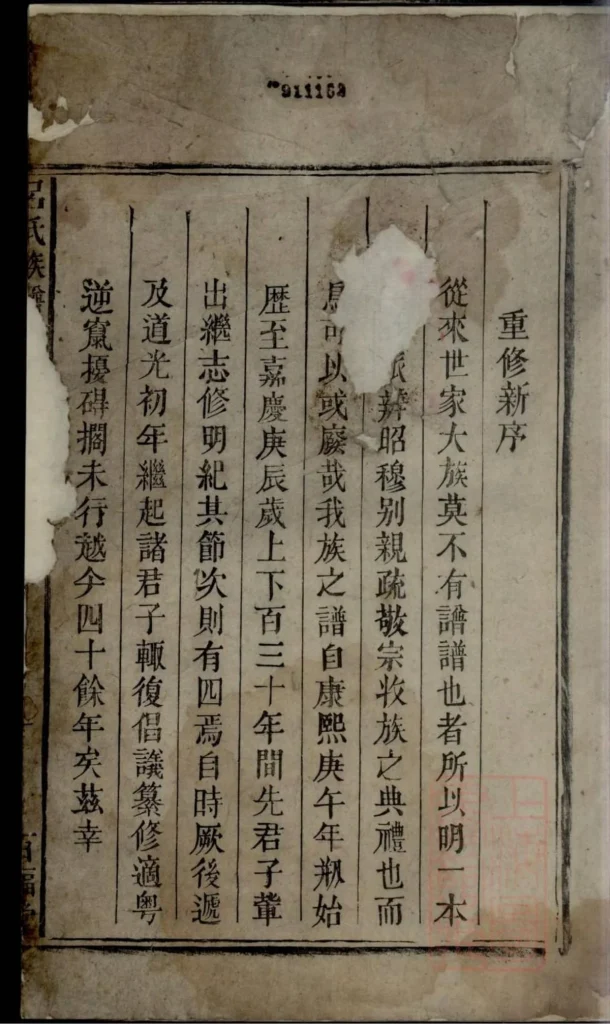 911162
重修新序
從來世家大族莫不有譜譜也者所以明一本
派辨昭穆别親疏敬宗收族之典禮也而
可以或廢哉我族之譜自康熙庚午年剏始
歴至嘉慶庚辰歲上下百三十年間先君子輩
出繼志修明紀其節次則有四焉自時厥後遞
及道光初年繼起諸君子輒復倡議纂修適粤
逆竄擾碍擱未行越今四十餘年矣兹幸
吕氏族譜
百福堂